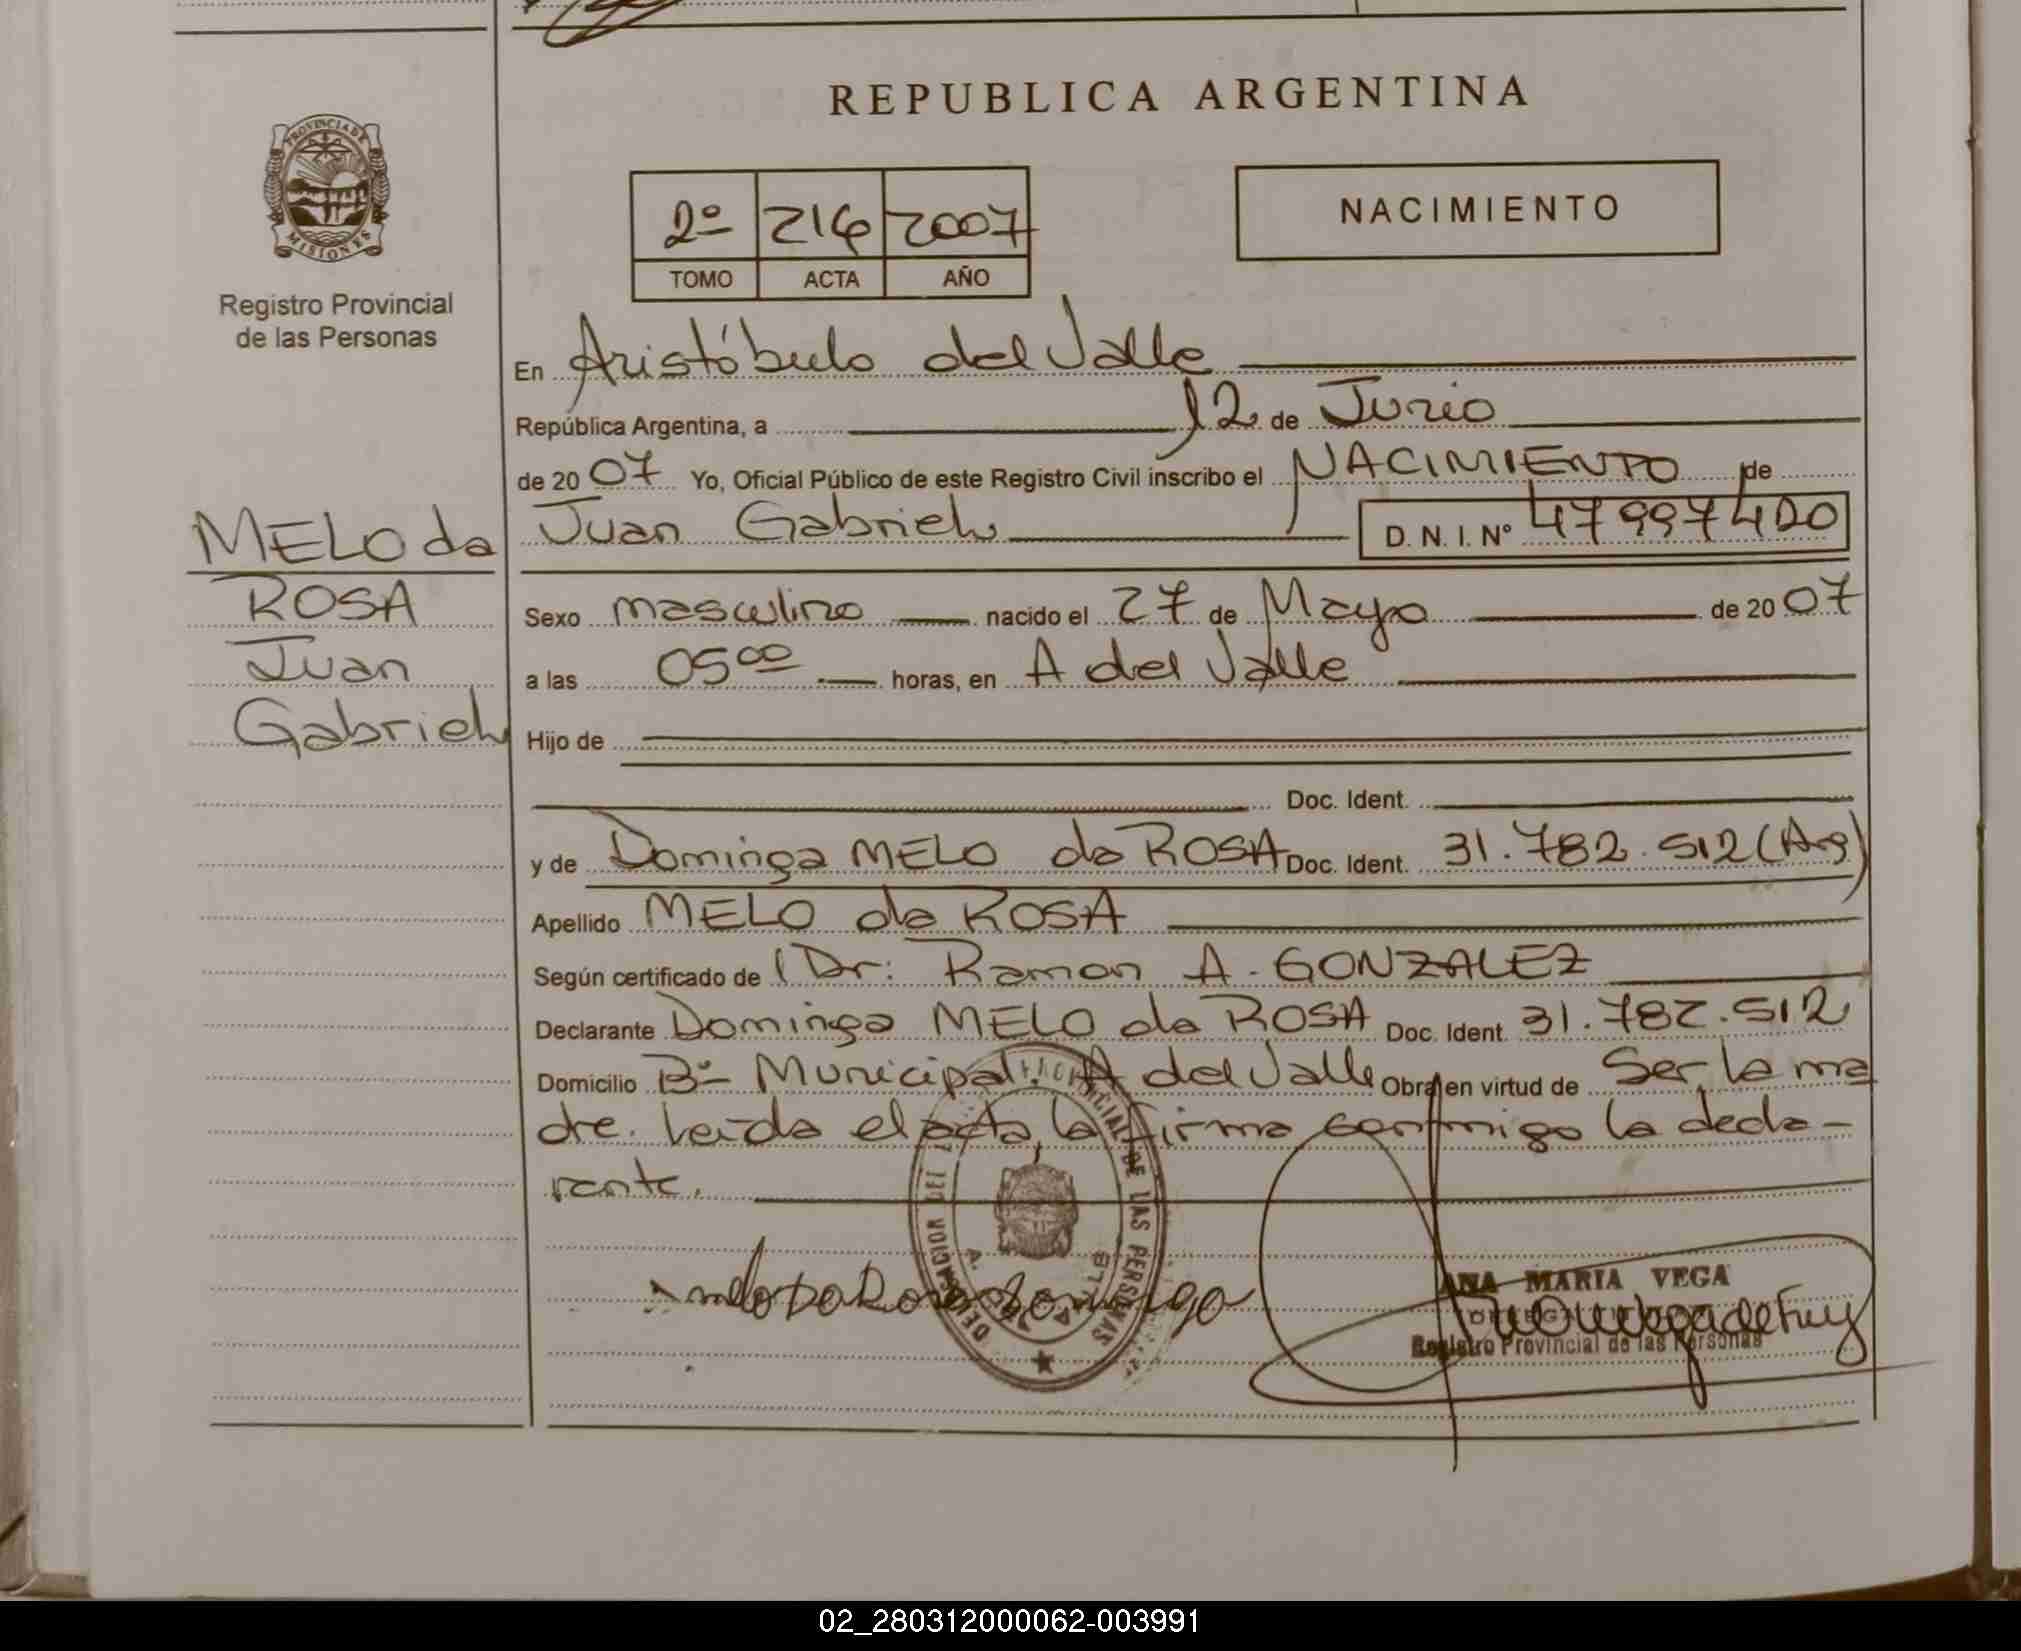 REPUBLICA ARGENTINA
PROVINCIA DE
MISIONES
Registro Provincial
de las Personas
2º 216 2007
TOMO ACTA AÑO
NACIMIENTO
En Aristóbulo del Valle
República Argentina, a 12 de Junio
de 2007 Yo, Oficial Público de este Registro Civil inscribo el NACIMIENTO de
Juan Gabriel D. N. I. Nº 47997400
MELO da
ROSA
Juan
Gabriel
Sexo masculino nacido el 27 de Mayo de 2007
a las 05 00 horas, en A del Valle
Hijo de
Doc. Ident.
y de Dominga MELO da ROSA Doc. Ident. 31.782.512 (Arg)
Apellido MELO da ROSA
Según certificado de Dr: Ramon A. GONZALEZ
Declarante Dominga MELO da ROSA Doc. Ident. 31.782.512
Domicilio Bº Municipal. A del Valle Obra en virtud de Ser la ma
dre. Leída el acta, la firma conmigo la decla-
rante.
melo Da Rosa Dominga
PROVINCIAL DE LAS PERSONAS
ANA MARIA VEGA
Registro Provincial de las Personas
02_280312000062-003991